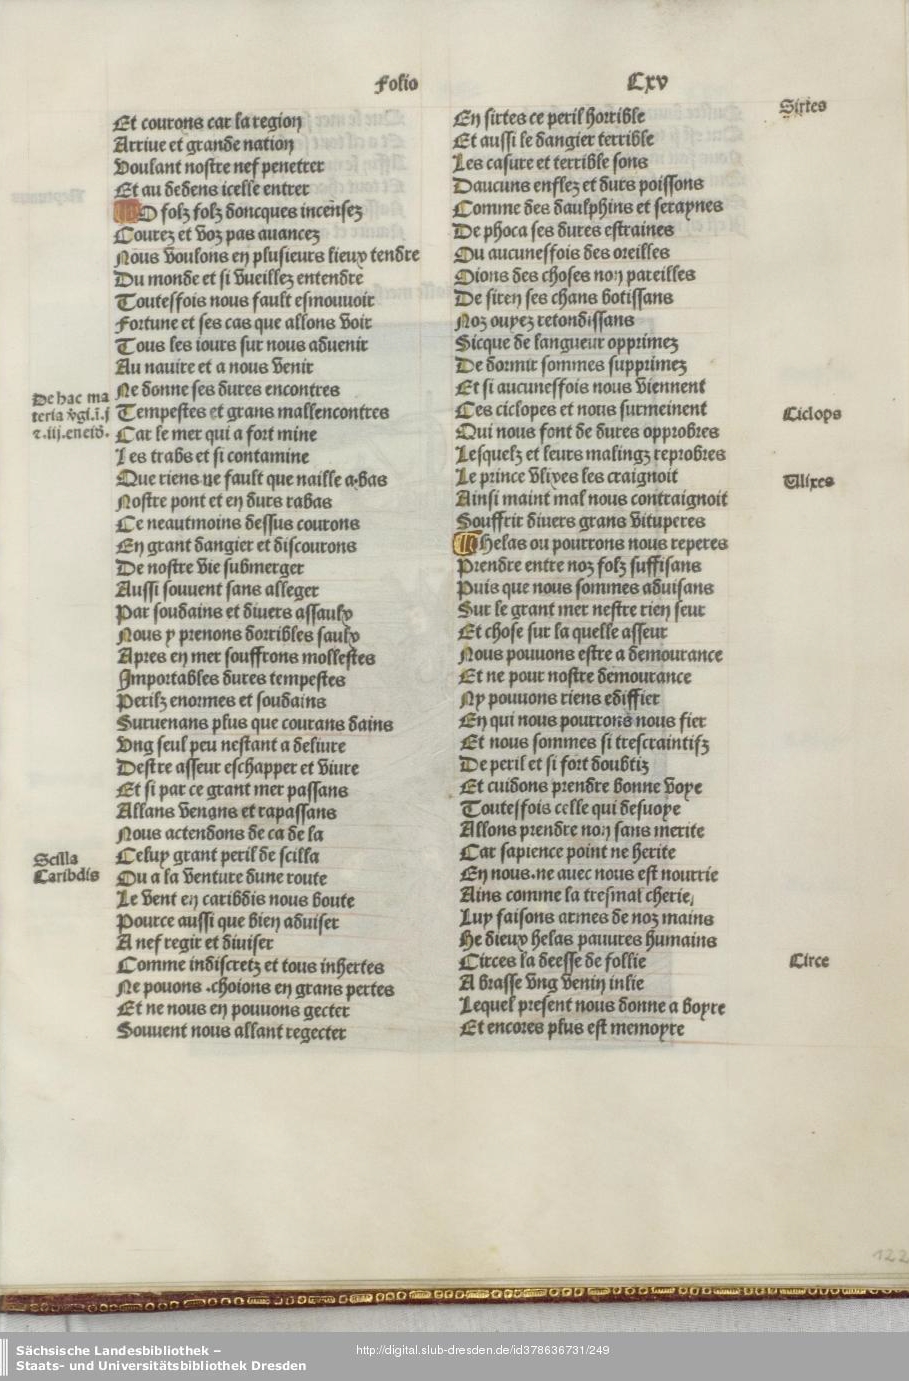 Folio Cxv
Et courons car la region
Arriue et grande nation
Voulant nostre nef penetrer
Et au dedens icelle entrer
O folz folz doncques incensez
Courez et voz pas auancez
Nous voulons en plusieurs lieux tendre
Du monde et si vueillez entendre
Toutesfois nous fault esmouuoir
Fortune et ses cas que allons voir
Tous les iours sur nous aduenir
Au nauire et a nous venir
Ne donne ses dures encontres
Tempestes et grans mallencontres
Car le mer qui a fort mine
Les trabs et si contamine
Que riens ne fault que naille a.bas
Nostre pont et en durs rabas
Ce neautmoins dessus courons
En grant dangier et discourons
De nostre vie submerger
Aussi souuent sans alleger
Par soudains et diuers assaulx
Nous y prenons dorribles saulx
Apres en mer souffrons mollestes
Importables dures tempestes
Perilz enormes et soudains
Suruenans plus que courans dains
Vng seul peu nestant a deliure
Destre asseur eschapper et viure
Et si par ce grant mer passans
Allans venans et rapassans
Nous actendons de ca de la
Celuy grant peril de scilla
Ou a la venture dune route
Le vent en caribdis nous boute
Pource aussi que bien aduiser
A nef regir et diuiser
Comme indiscretz et tous inhertes
Ne pouons .choions en grans pertes
Et ne nous en pouuons gecter
Souuent nous allant regecter
De hac ma
teria v̄gi.i.j
⁊.iij.eneid̄.
Scilla
Caribdis
En sirtes ce peril horrible
Et aussi le dangier terrible
Les casure et terrible sons
Daucuns enflez et durs poissons
Comme des daulphins et seraynes
De phoca ses dures estraines
Ou aucuneffois des oreilles
Oions des choses non pareilles
De siren ses chans botissans
Noz ouyez retondissans
Sicque de langueur opprimez
De dormir sommes supprimez
Et si aucuneffois nous viennent
Ces ciclopes et nous surmeinent
Qui nous font de dures opprobres
Lesquelz et leurs malingz reprobres
Le prince vlixes les craignoit
Ainsi maint mal nous contraignoit
Souffrir diuers grans vituperes
Helas ou pourrons nous reperes
Prendre entre noz folz suffisans
Puis que nous sommes aduisans
Sur le grant mer nestre rien seur
Et chose sur la quelle asseur
Nous pouuons estre a demourance
Et ne pour nostre demourance
Ny pouuons riens ediffier
En qui nous pourrons nous fier
Et nous sommes si trescraintifz
De peril et si fort doubtiz
Et cuidons prendre bonne voye
Toutesfois celle qui desuoye
Allons prendre non sans merite
Car sapience point ne herite
En nous.ne auec nous est nourrie
Ains comme la tresmal cherie,
Luy faisons armes de noz mains
He dieux helas pauures humains
Circes la deesse de follie
A brasse vng venin inlie
Lequel present nous donne a boyre
Et encores plus est memoyre
Sirtes
Ciclops
Ulixes
Circe
122
Sächsische Landesbibliothek –
Staats- und Universitätsbibliothek Dresden
http://digital.slub-dresden.de/id378636731/249